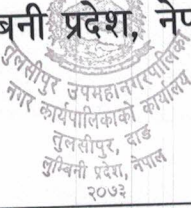 बनी प्रदेश, नेप
तुलसीपुर उपमहानगरपालिका
नगर कार्यपालिकाको कार्यालय
तुलसीपुर, दाङ
लुम्बिनी प्रदेश, नेपाल
२०७३